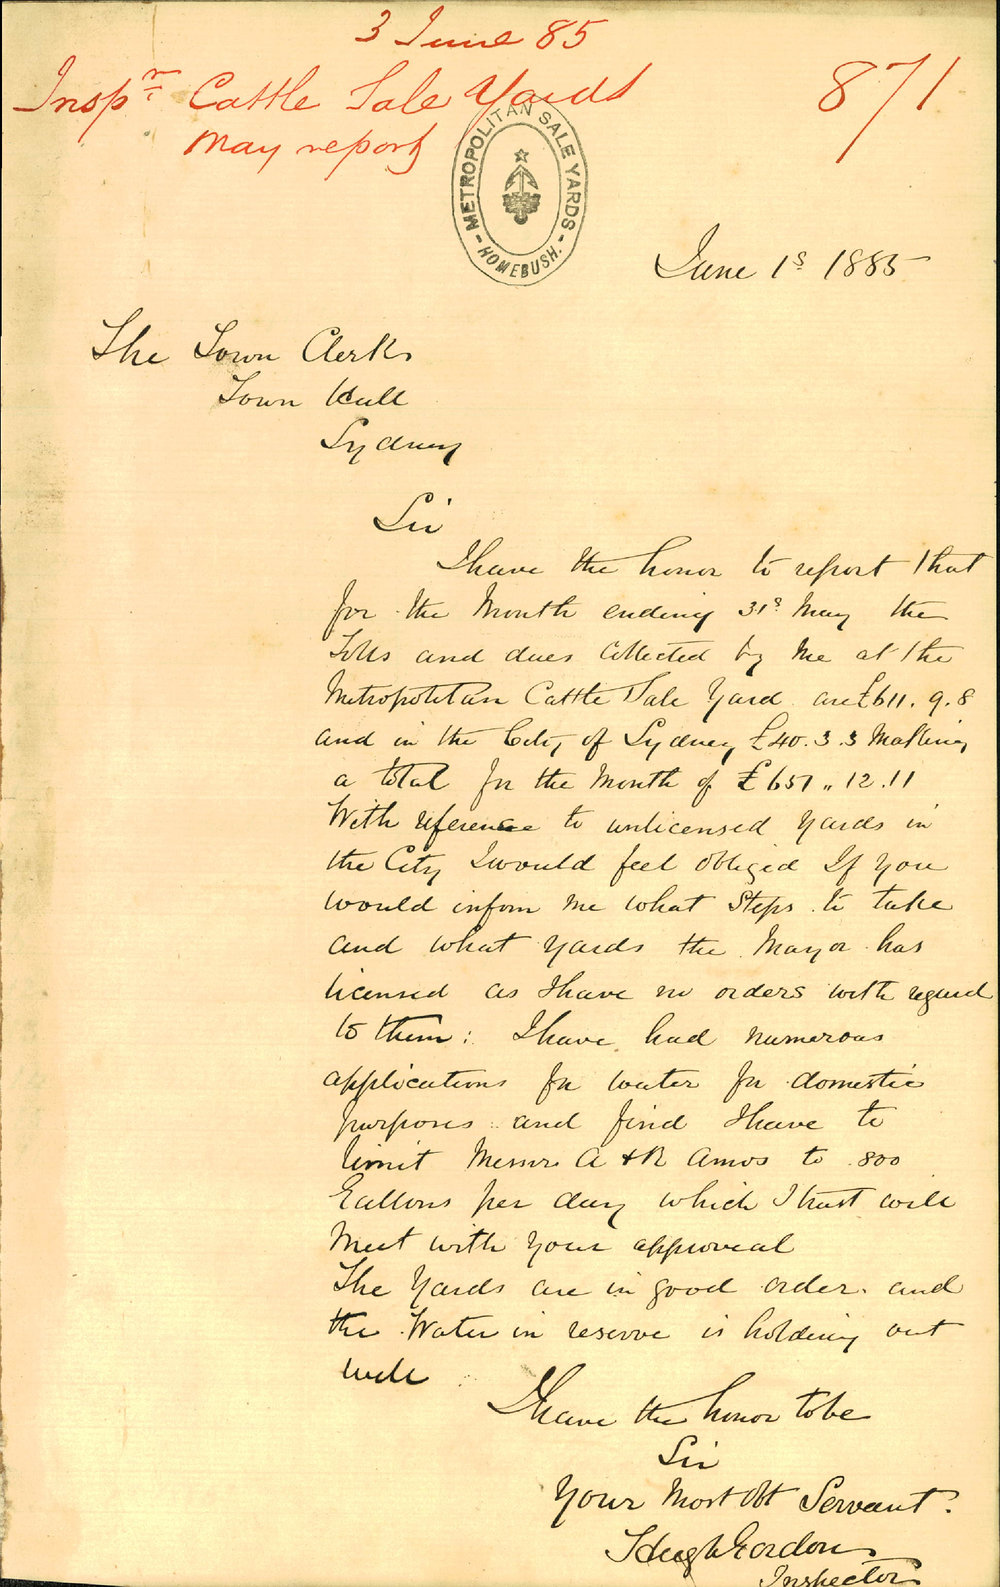 3 June 85
Inspr. Cattle Sale Yards
871
May report
METROPOLITAN SALE YARDS - HOMEBUSH. -
June 1s 1885
The Town Clerk
Town Hall
Sydney
Sir
I have the honor to report that
for the Month ending 31s May the
Tolls and dues Collected by Me at the
Metropolitan Cattle Sale Yard are £611. 9. 8
and in the City of Sydney £40. 3. 3 Making
a total for the Month of £651 ,, 12. 11
With reference to unlicensed yards in
the City I would feel obliged If you
would inform me what Steps to take
and what yards the Mayor has
licensed as I have no orders with regard
to them: I have had numerous
applications for water for domestic
purposes and find I have to
limit Messrs A & R Amos to 800
Gallons per day which I trust will
Meet with your approval
The Yards are in good order and
the Water in reserve is holding out
well
I have the honor to be
Sir
Your Most Obt Servant.
Hugh Gordon
Inspector